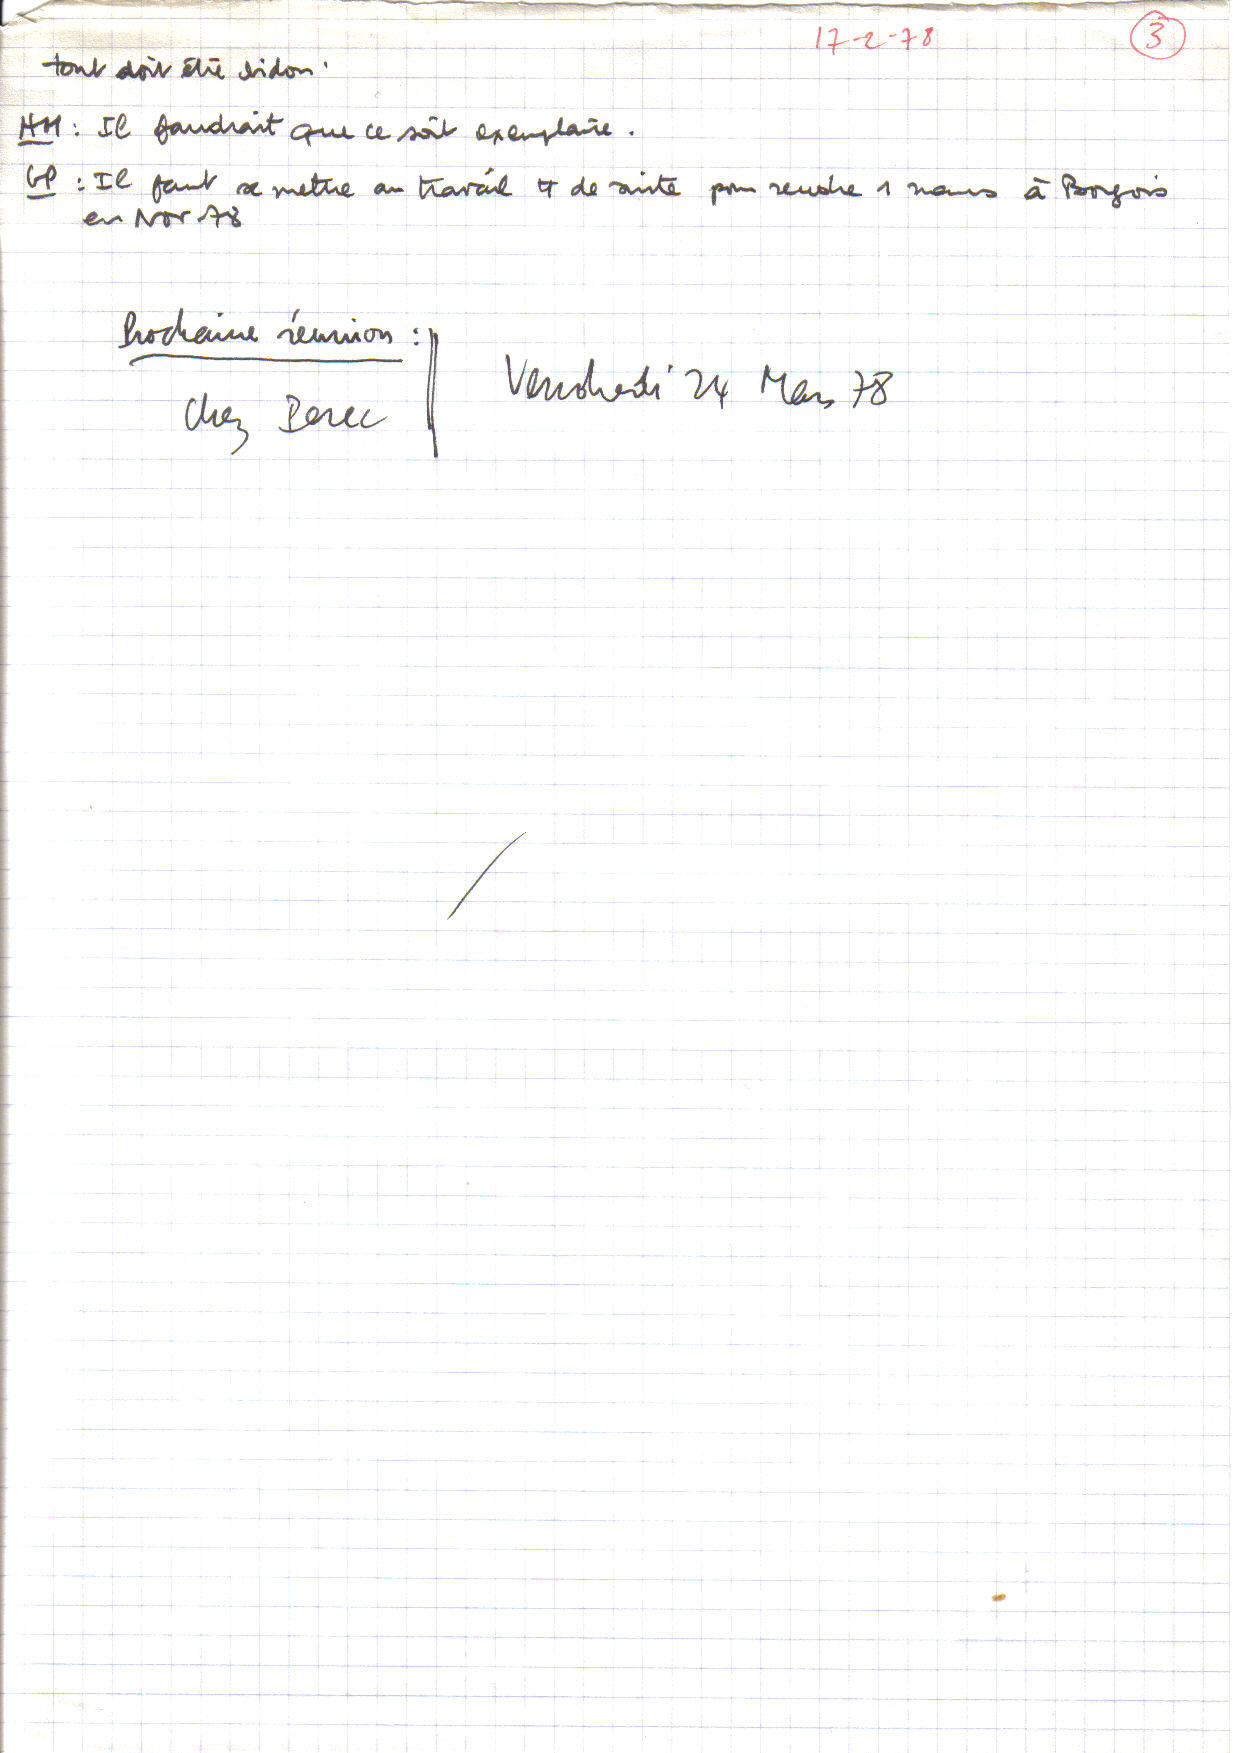 17-2-78 3
tout doit être bidon.
HM : Il faudrait que ce soit exemplaire.
GP : Il faut se mettre au travail et de suite pour rendre 1 manus à Borgois
en Nov 78
Prochaine réunion :
Vendredi 24 Mars 78
Chez Perec